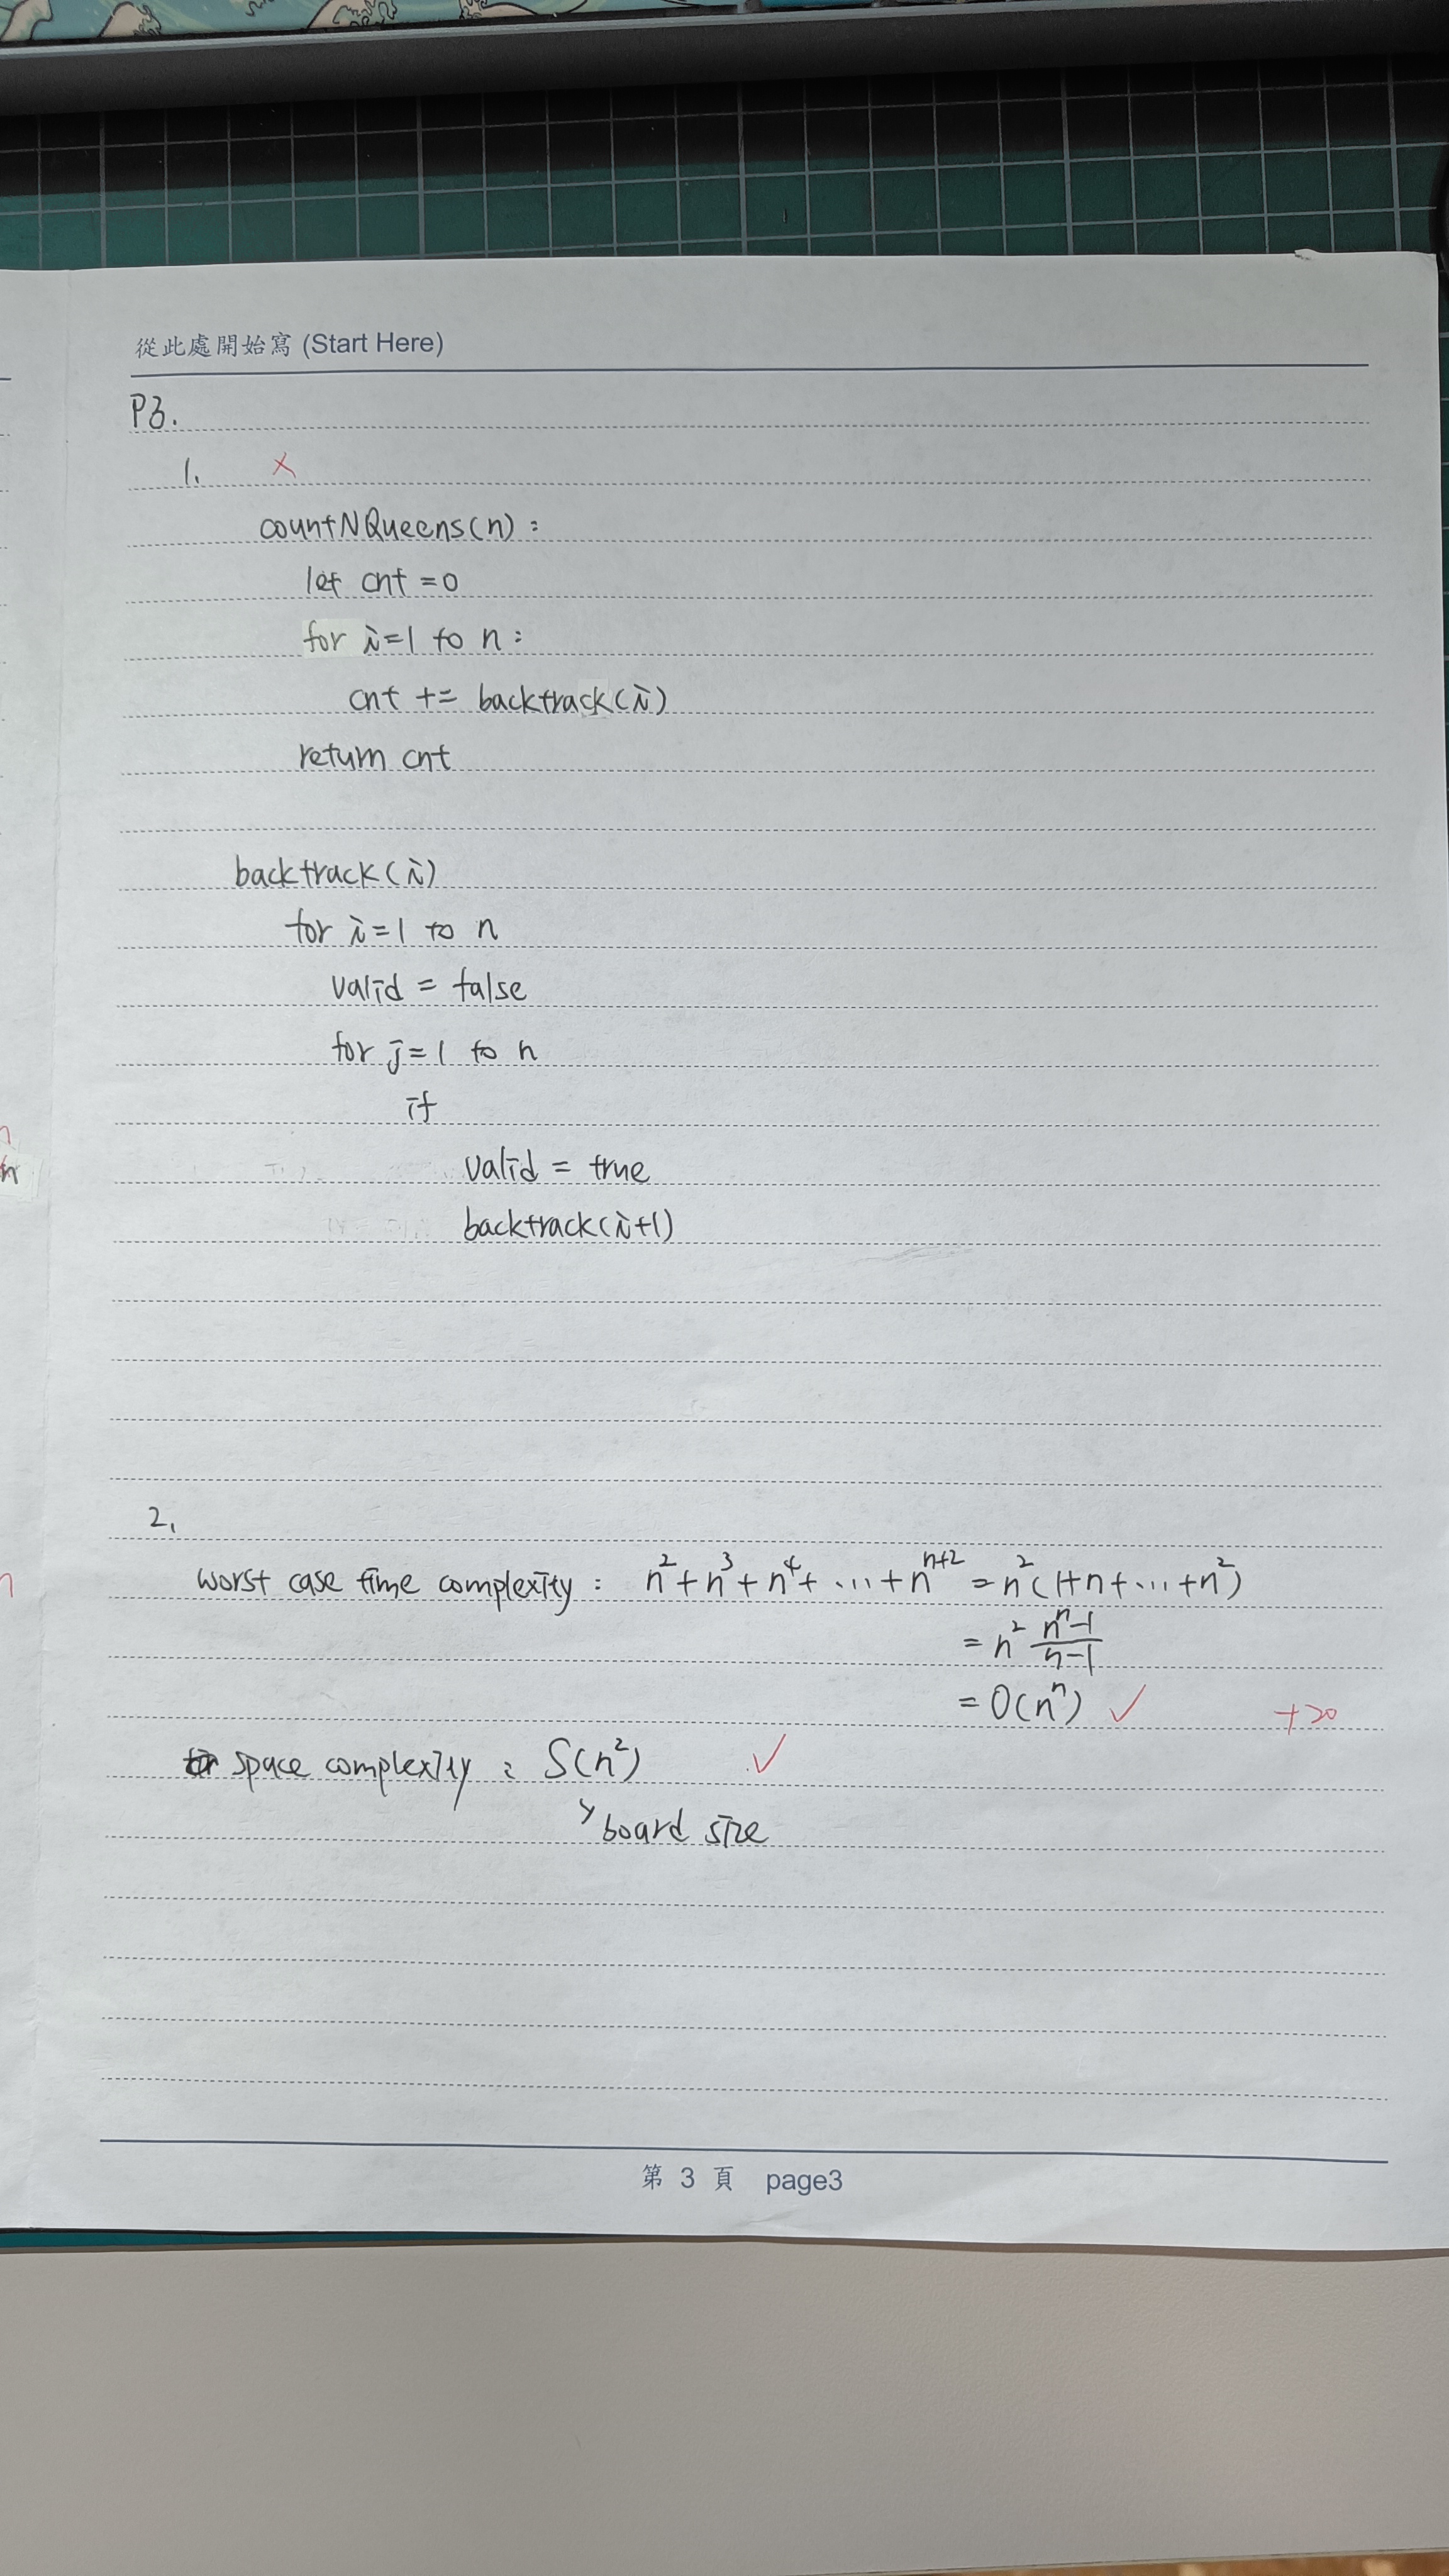 從此處開始寫 (Start Here)
P3.
1. ×
countNQueens(n) :
let cnt = 0
for i=1 to n :
cnt += backtrack(i)
return cnt
backtrack(i)
for i=1 to n
valid = false
for j=1 to n
if
valid = true
backtrack(i+1)
2.
worst case time complexity : n² + n³ + n⁴ + ... + nⁿ⁺² = n²(1+n+...+n²)
= n² (nⁿ-1)/(n-1)
= O(nⁿ) ✓ +20
space complexity : S(n²) ✓
board size
第 3 頁 page3